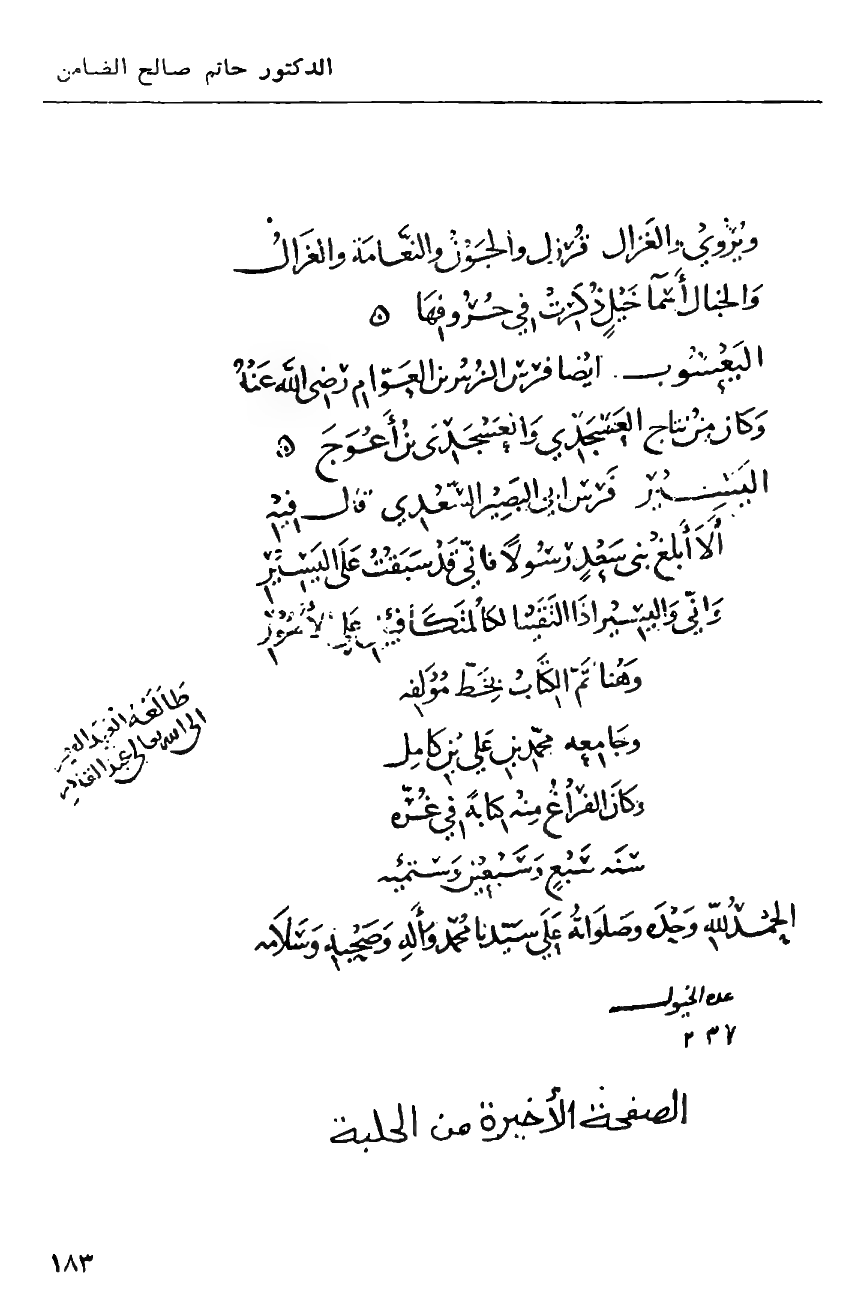 الدكتور حاتم صالح الضامن
ويُرْوي والغَزال قُرْزُل والجَوْنُ والنَّعَامَة والغَزالُ
وَالخَبال أَسْمَآ خَيْلٍ ذُكِرَتْ فِي حُرُوفِهَا ٥
اليَعْسُوب . ايْضا فَرسُ الزُبَيْر بن العَوّام رَضِى اللَّه عَنْهُ
وَكَانَ مِنْ نتاج العَسْجَدِي وَالْعَسْجَدِى بنُ أَعْوَجَ ٥
اليَسِيْر فَرَسُ ابى البَصِيْر السَّعْدِي قال فِيْهِ
أَلَا أَبْلِغْ بَنِى سَعْدٍ رَسُولًا فانِّي قَدْ سَبَقْتُ عَلَى اليَسِيْرِ
وَانِّي وَاليَسِيْر اذَا الْتَقَيْنا لكالمُتَكَافِئَيْنِ عَلَى الأُمُوْرِ
وَهُنا تَمَّ الكِتَابُ بِخَطِّ مُؤَلِّفِه
وجَامِعِه مُحمَّدِ بنِ عَلي بْنِ كامِل
وَكَانَ الفَرَاغُ مِنْهُ كِتابَةً فِي غُرّه
سَنَه سَبْعٍ وَسَبْعِيْنَ وَسِتمِئه
طَالَعَهُ العَبْدُ الفقير
الى الله تعالى عبد القادر
الحَمْدُ للّهِ وَحْدَه وصَلَوَاتُهُ عَلَى سَيِّدنا مُحمّدٍ وَآلِهِ وَصَحْبِهِ وَسَلَامه
عده الخيول
٢٣٧
الصفحة الأخيرة من الحلبة
١٨٣